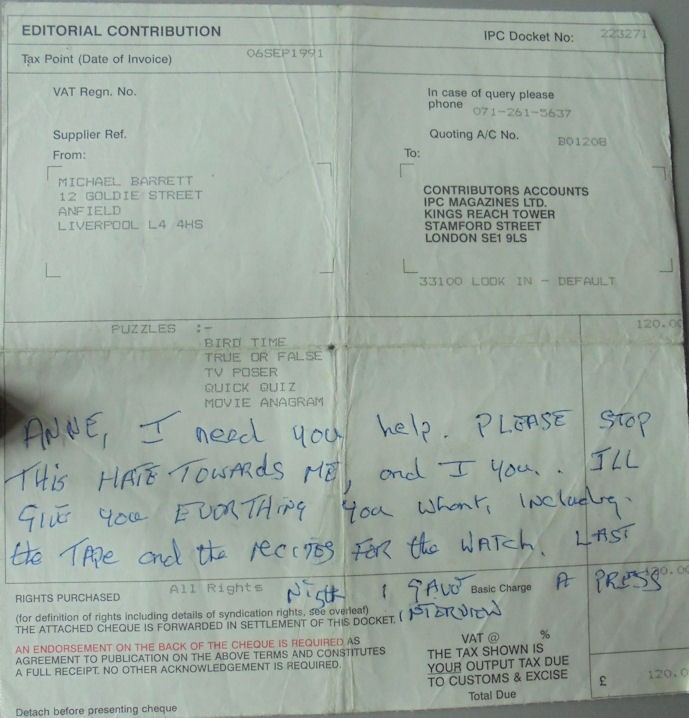 EDITORIAL CONTRIBUTION
IPC Docket No: 223271
Tax Point (Date of Invoice) 06SEP1991
VAT Regn. No.
In case of query please
phone 071-261-5637
Supplier Ref.
Quoting A/C No. B0120B
From:
To:
MICHAEL BARRETT
12 GOLDIE STREET
ANFIELD
LIVERPOOL L4 4HS
CONTRIBUTORS ACCOUNTS
IPC MAGAZINES LTD.
KINGS REACH TOWER
STAMFORD STREET
LONDON SE1 9LS
33100 LOOK IN - DEFAULT
PUZZLES :-
120.00
BIRD TIME
TRUE OR FALSE
TV POSER
QUICK QUIZ
MOVIE ANAGRAM
ANNE, I need you help. PLEASE STOP
THIS HATE TOWARDS ME, and I you. ILL
GIVE you EVORTHING you whant, including
the TAPE and the recites FOR the WATCH. LAST
Nigth I GAVE A PRESS
INTERVIEW
RIGHTS PURCHASED All Rights
Basic Charge
(for definition of rights including details of syndication rights, see overleaf)
THE ATTACHED CHEQUE IS FORWARDED IN SETTLEMENT OF THIS DOCKET.
AN ENDORSEMENT ON THE BACK OF THE CHEQUE IS REQUIRED AS
AGREEMENT TO PUBLICATION ON THE ABOVE TERMS AND CONSTITUTES
A FULL RECEIPT. NO OTHER ACKNOWLEDGEMENT IS REQUIRED.
VAT @ %
THE TAX SHOWN IS
YOUR OUTPUT TAX DUE
TO CUSTOMS & EXCISE
Total Due
£ 120.0
Detach before presenting cheque